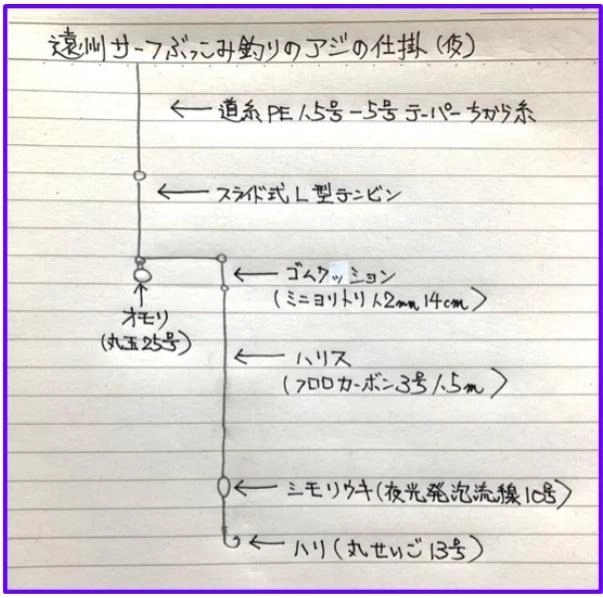 遠州サーフぶっこみ釣りのアジの仕掛(仮)
← 道糸PE1.5号-5号テーパーちから糸
← スライド式L型テンビン
← ゴムクッション
(ミニヨリトリ1.2mm14cm)
↑
オモリ
(丸玉25号)
← ハリス
(フロロカーボン3号1.5m)
← シモリウキ(夜光発泡流線10号)
← ハリ(丸せいご13号)